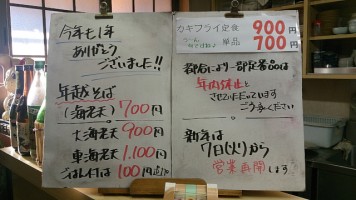 今年も1年
ありがとう
ございました!!
年越そば
(海老天) 700円
大海老天 900円
車海老天 1.100円
ごはん付は 100円
カキフライ定食 900円
単品 700円
都合により一部定番品は
年内休止と
させていただいています
ご了承ください
新年は
7日(火)から
営業再開します